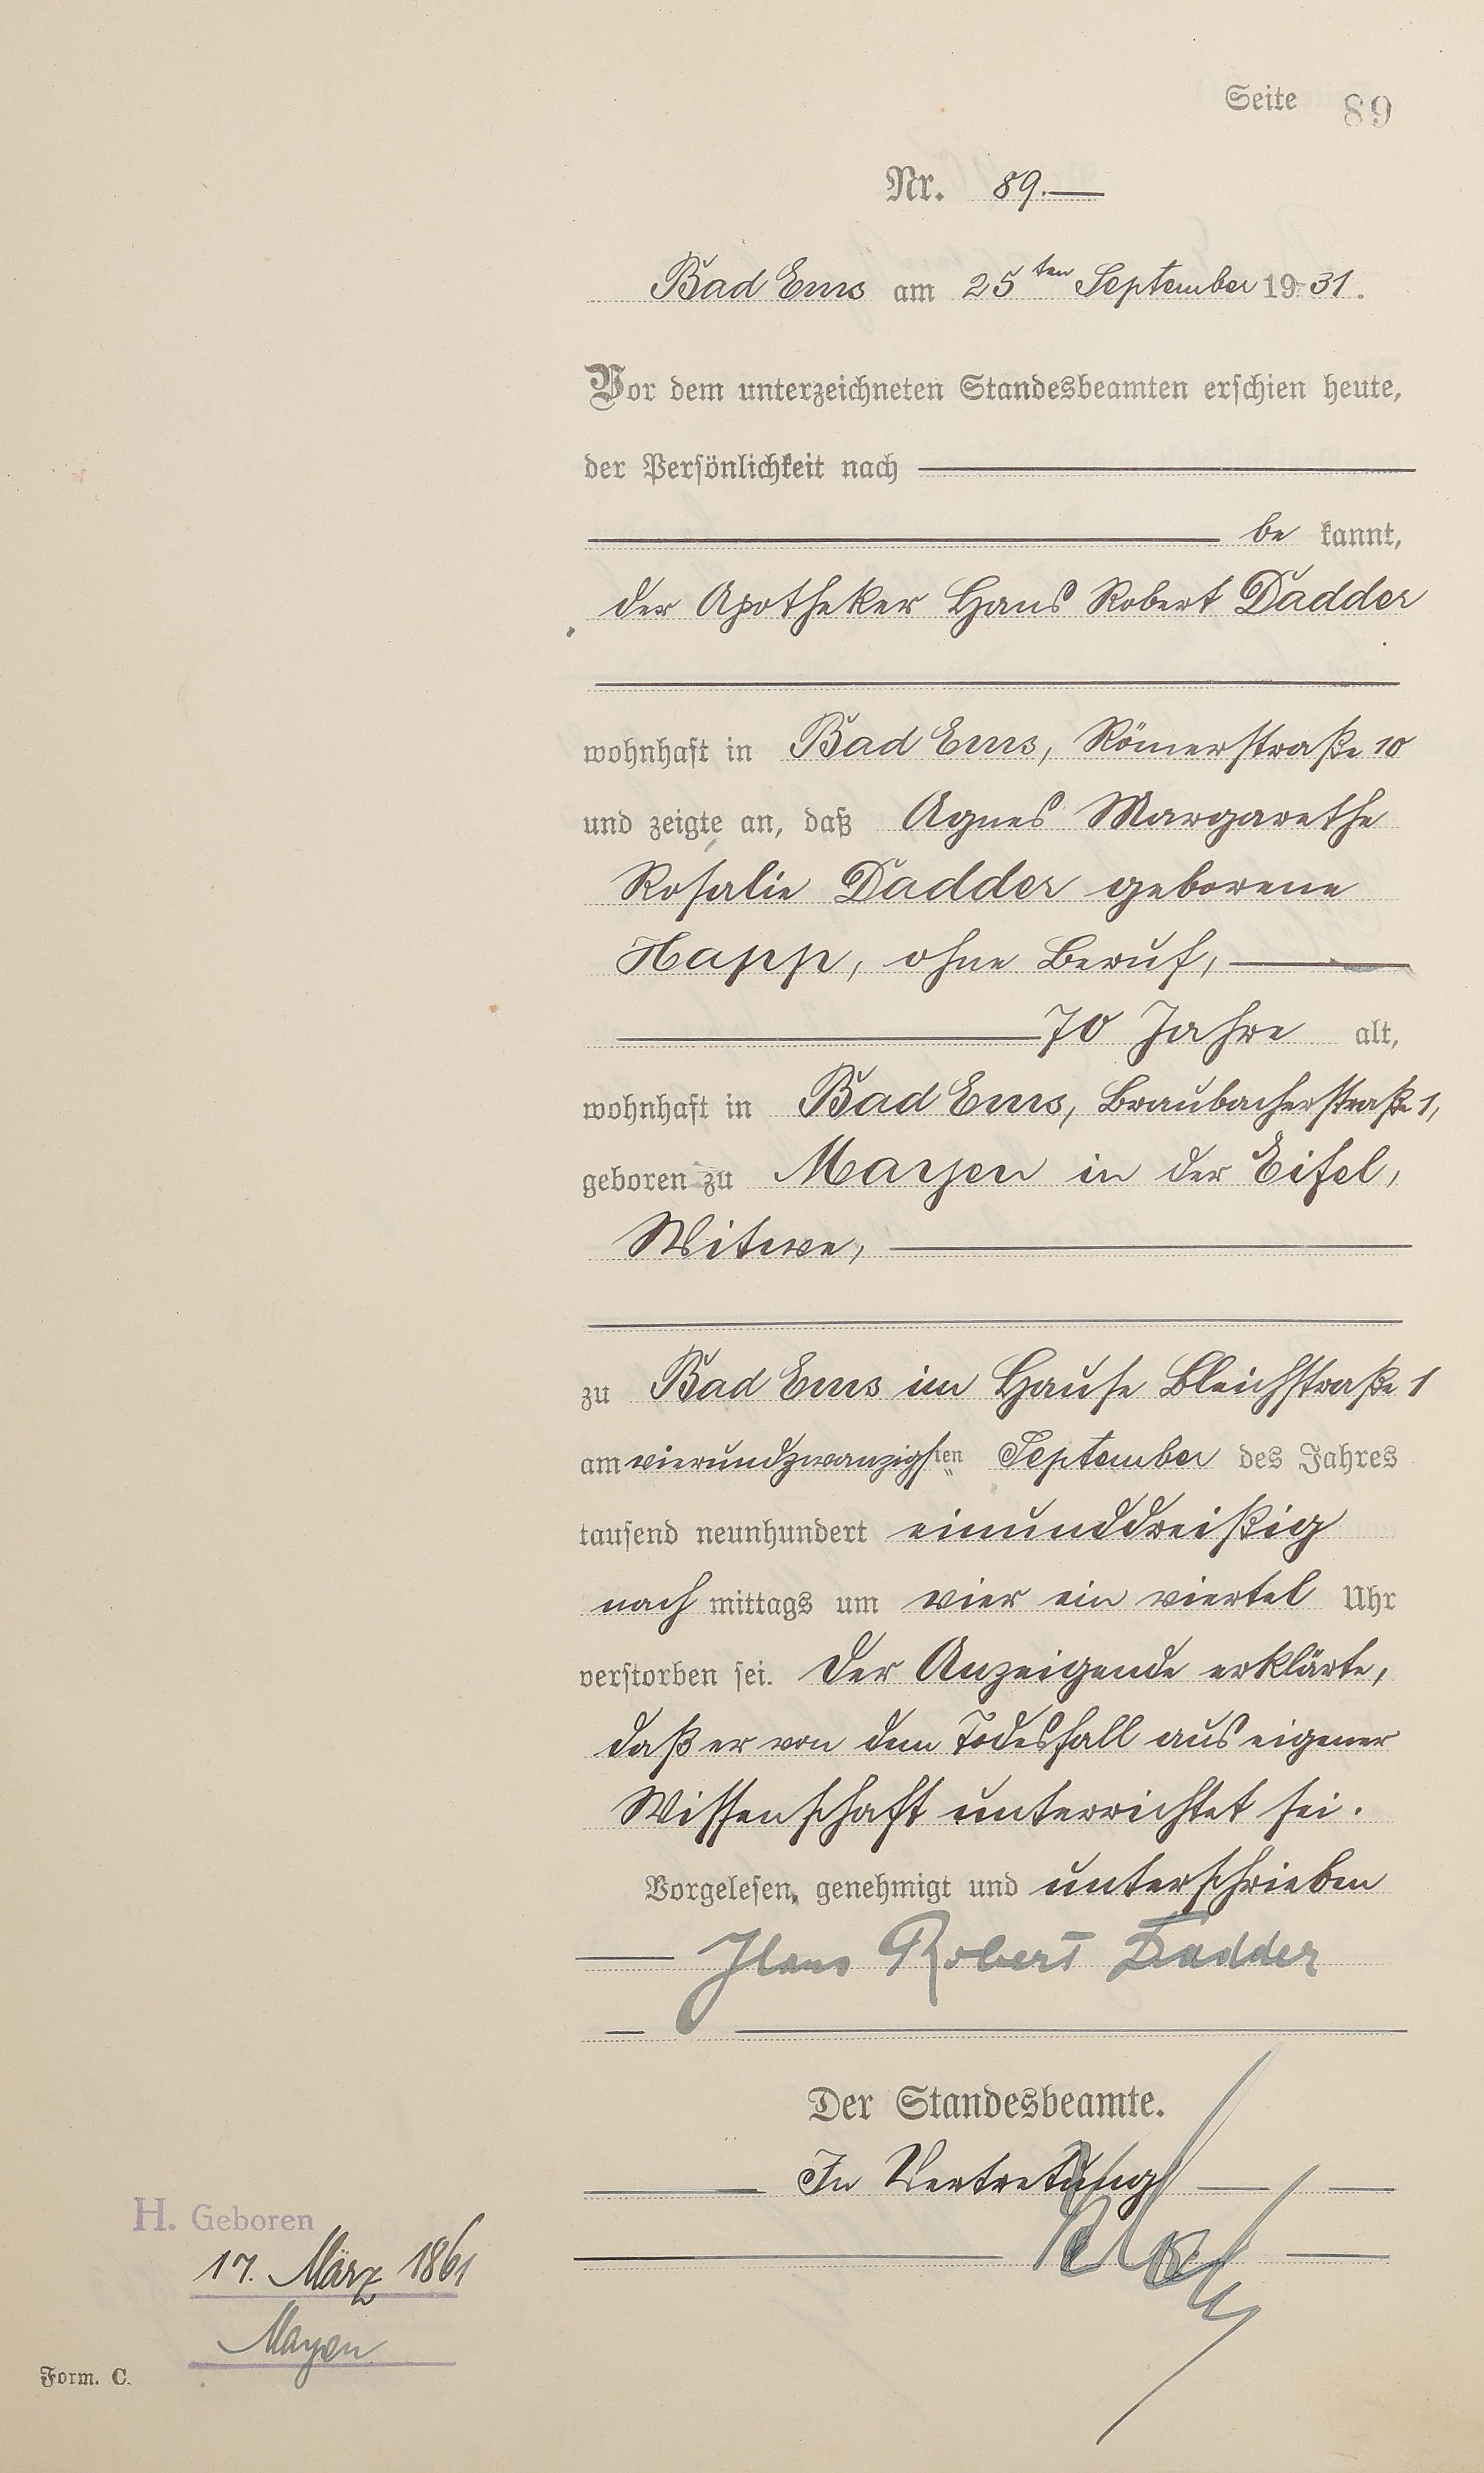 Seite 89
Nr. 89.
Bad Ems am 25ten September 1931.
Vor dem unterzeichneten Standesbeamten erschien heute,
der Persönlichkeit nach
be kannt,
der Apotheker Hans Robert Dadder
wohnhaft in Bad Ems, Römerstraße 10
und zeigte an, daß Agnes Margarethe
Rosalie Dadder geborene
Happ, ohne Beruf,
70 Jahre alt,
wohnhaft in Bad Ems, Braubacherstraße 1,
geboren zu Mayen in der Eifel,
Witwe,
zu Bad Ems im Hause Bleichstraße 1
am vierundzwanzigsten September des Jahres
tausend neunhundert einunddreißig
nach mittags um vier ein viertel Uhr
verstorben sei. Der Anzeigende erklärte,
daß er von dem Todesfall aus eigener
Wissenschaft unterrichtet sei.
Vorgelesen, genehmigt und unterschrieben
Hans Robert Dadder
Der Standesbeamte.
In Vertretung
H. Geboren
17. März 1861
Mayen
Form. C.